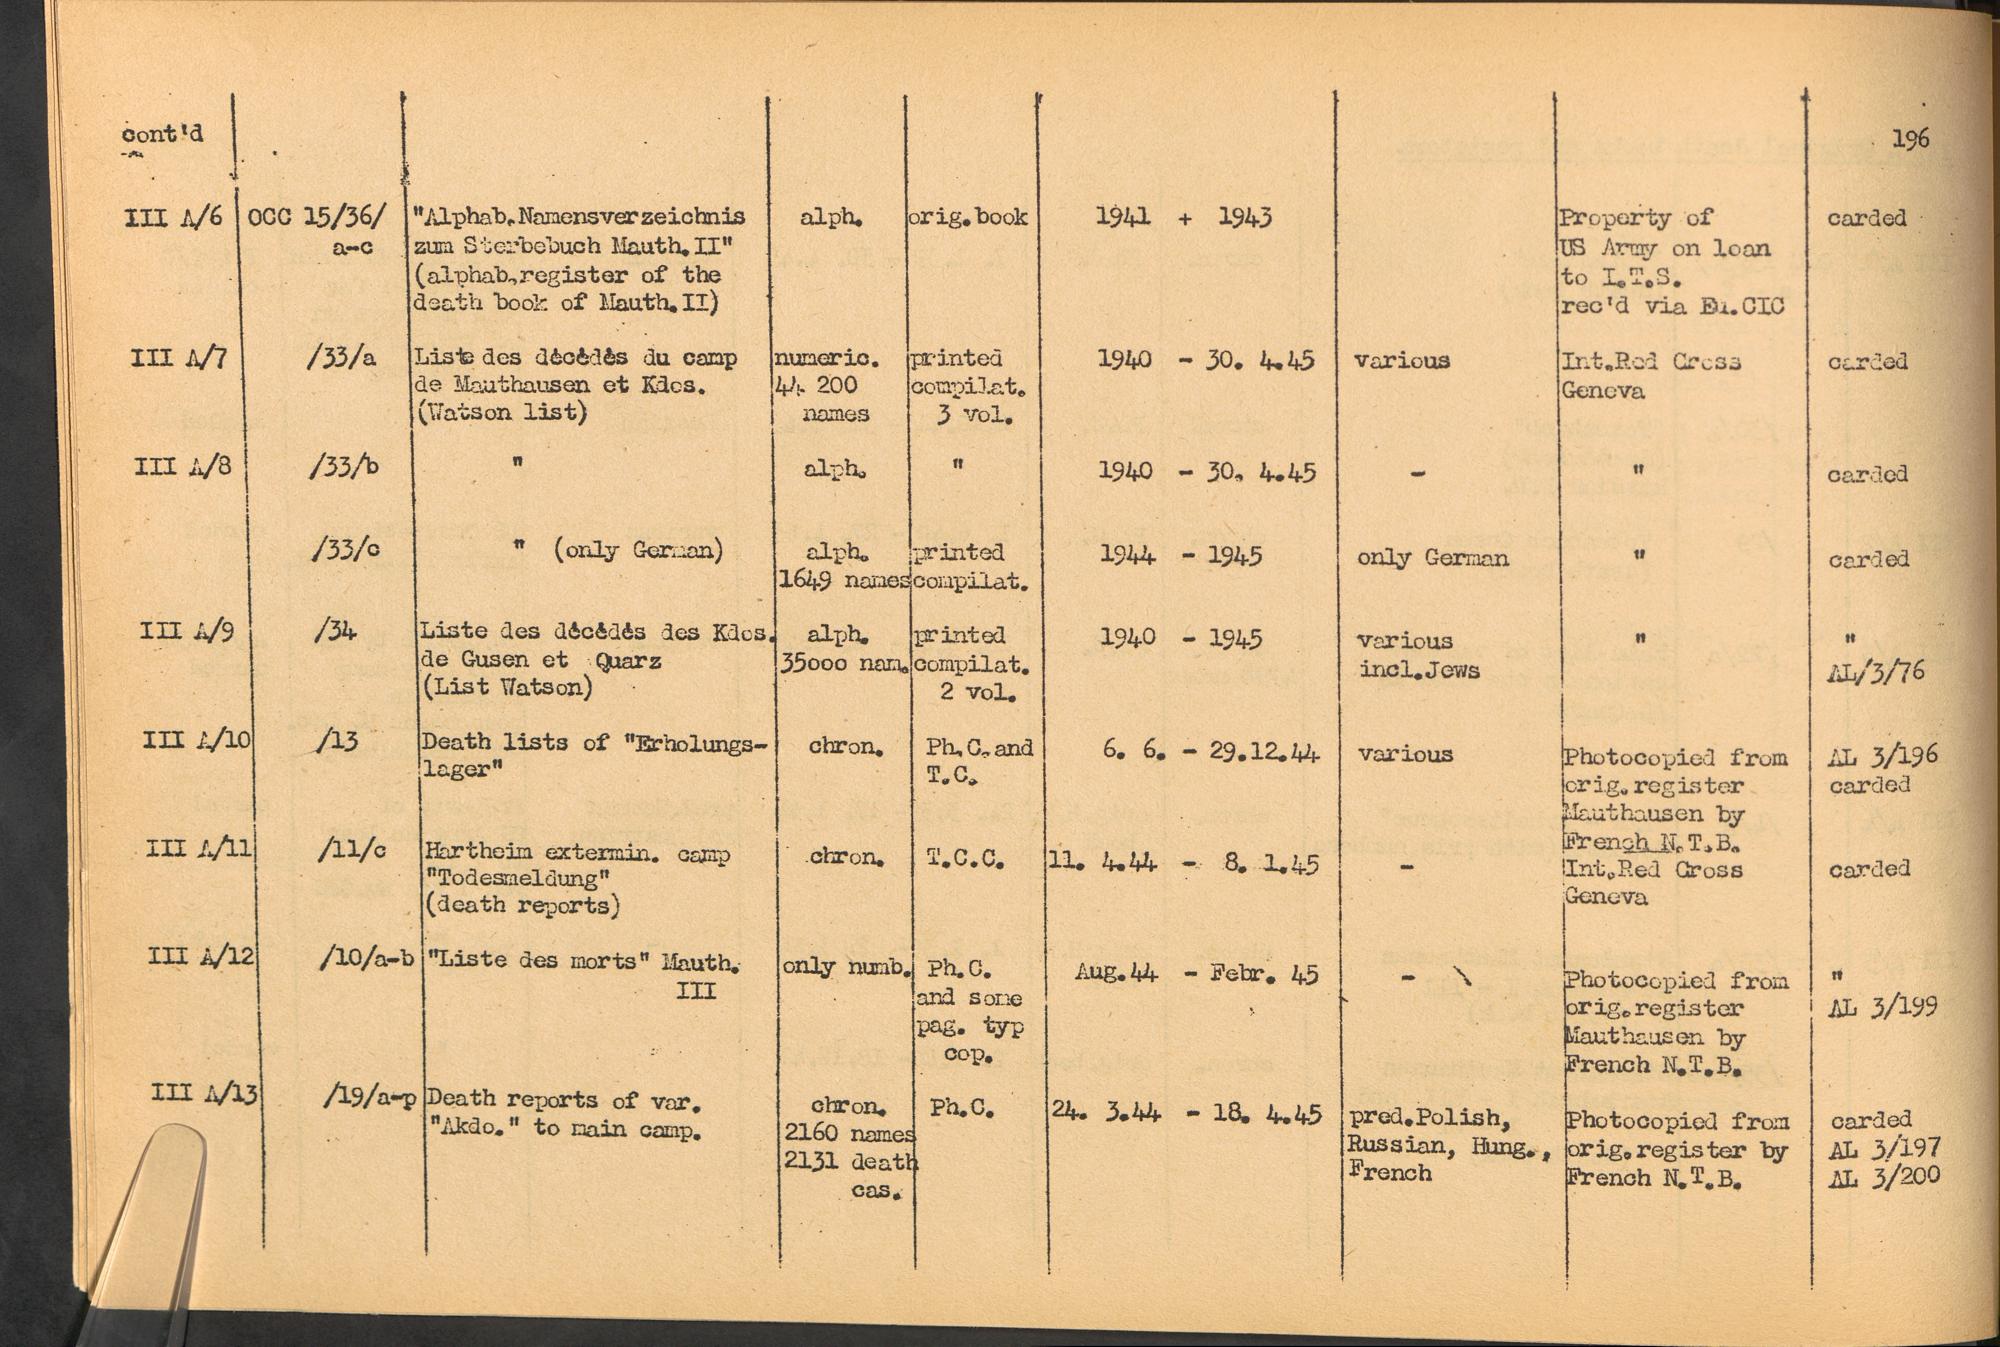 cont'd
196
III A/6 OCC 15/36/ "Alphab.Namensverzeichnis alph. orig.book 1941 + 1943 Property of carded
a-c zum Sterbebuch Mauth.II" US Army on loan
(alphab.register of the to I.T.S.
death book of Mauth.II) rec'd via EU.CIC
III A/7 /33/a Liste des décédés du camp numeric. printed 1940 - 30. 4.45 various Int.Red Cross carded
de Mauthausen et Kdos. 44 200 compilat. Geneva
(Watson list) names 3 vol.
III A/8 /33/b " alph. " 1940 - 30. 4.45 - " carded
/33/c " (only German) alph. printed 1944 - 1945 only German " carded
1649 names compilat.
III A/9 /34 Liste des décédés des Kdos. alph. printed 1940 - 1945 various " "
de Gusen et Quarz 35000 nam. compilat. incl.Jews AL/3/76
(List Watson) 2 vol.
III A/10 /13 Death lists of "Erholungs- chron. Ph.C.and 6. 6. - 29.12.44 various Photocopied from AL 3/196
lager" T.C. orig.register carded
Mauthausen by
French N.T.B.
III A/11 /11/c Hartheim extermin. camp chron. T.C.C. 11. 4.44 - 8. 1.45 - Int.Red Cross carded
"Todesmeldung" Geneva
(death reports)
III A/12 /10/a-b "Liste des morts" Mauth. only numb. Ph.C. Aug.44 - Febr. 45 - Photocopied from "
III and some orig.register AL 3/199
pag. typ Mauthausen by
cop. French N.T.B.
III A/13 /19/a-p Death reports of var. chron. Ph.C. 24. 3.44 - 18. 4.45 pred.Polish, Photocopied from carded
"Akdo." to main camp. 2160 names Russian, Hung., orig.register by AL 3/197
2131 death French French N.T.B. AL 3/200
cas.